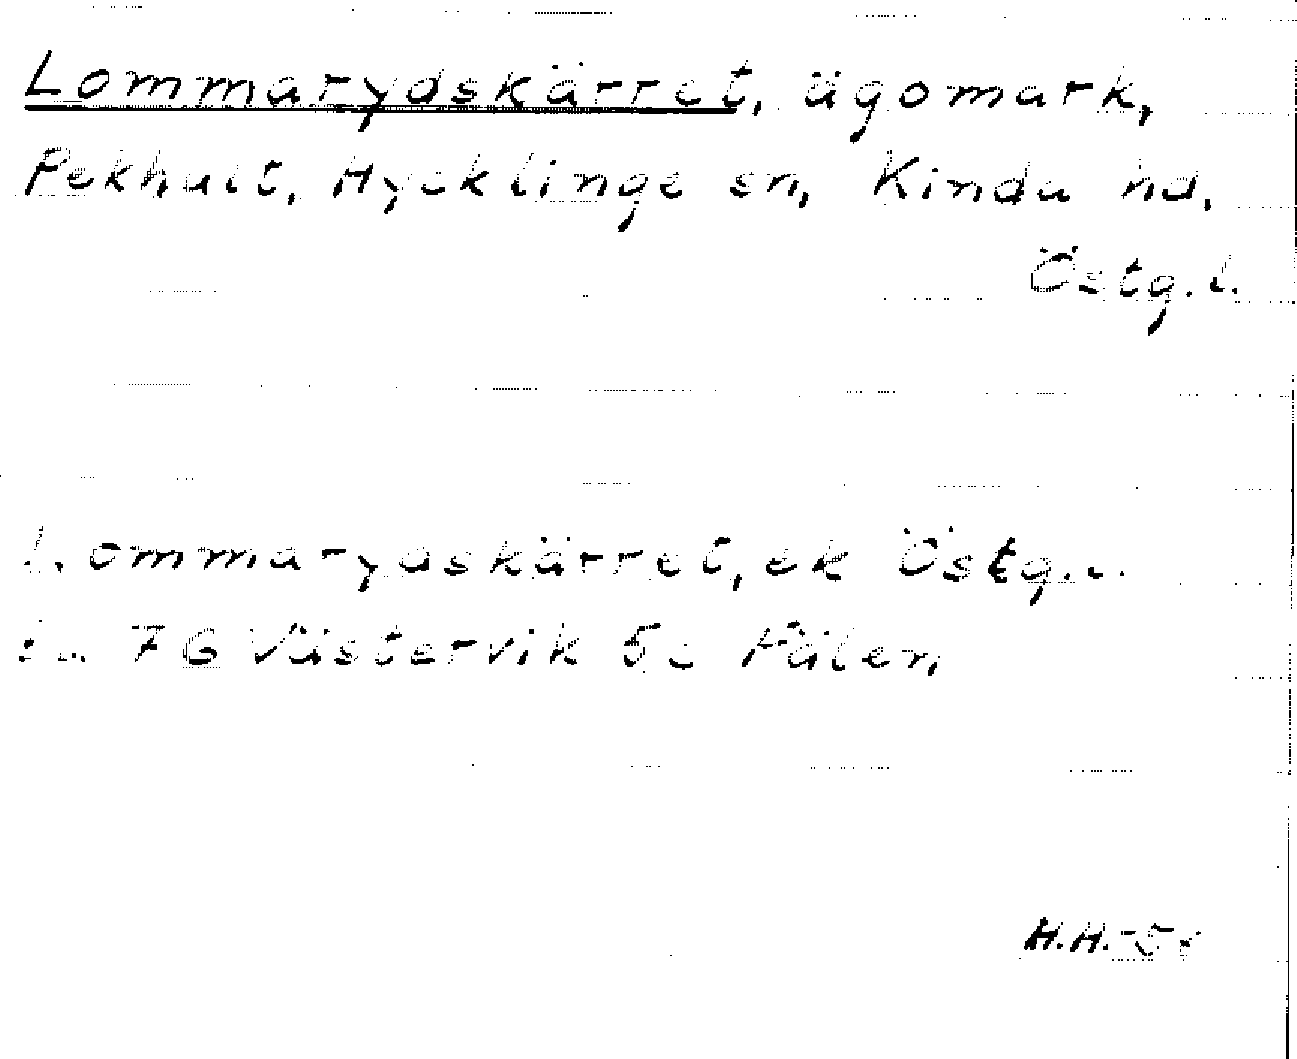 Lommarydskärret, ägomark,
Pekhult, Hycklinge sn, Kinda hd,
Östg. l.
Lommarydskärret, ek Östg. l.
7G Västervik 5c Fålen
H.H.